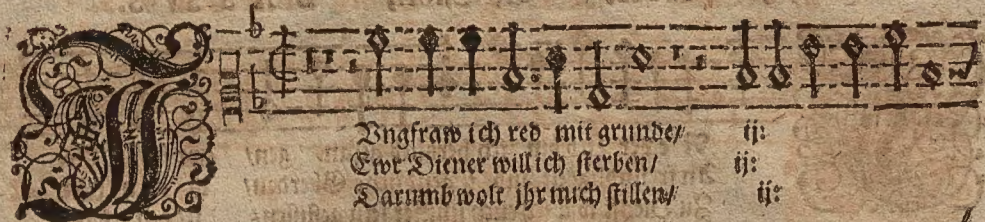 JVngfraw ich red mit grunde/ ij:
Ewr Diener will ich sterben/ ij:
Darumb wolt jhr mich stillen/ ij: